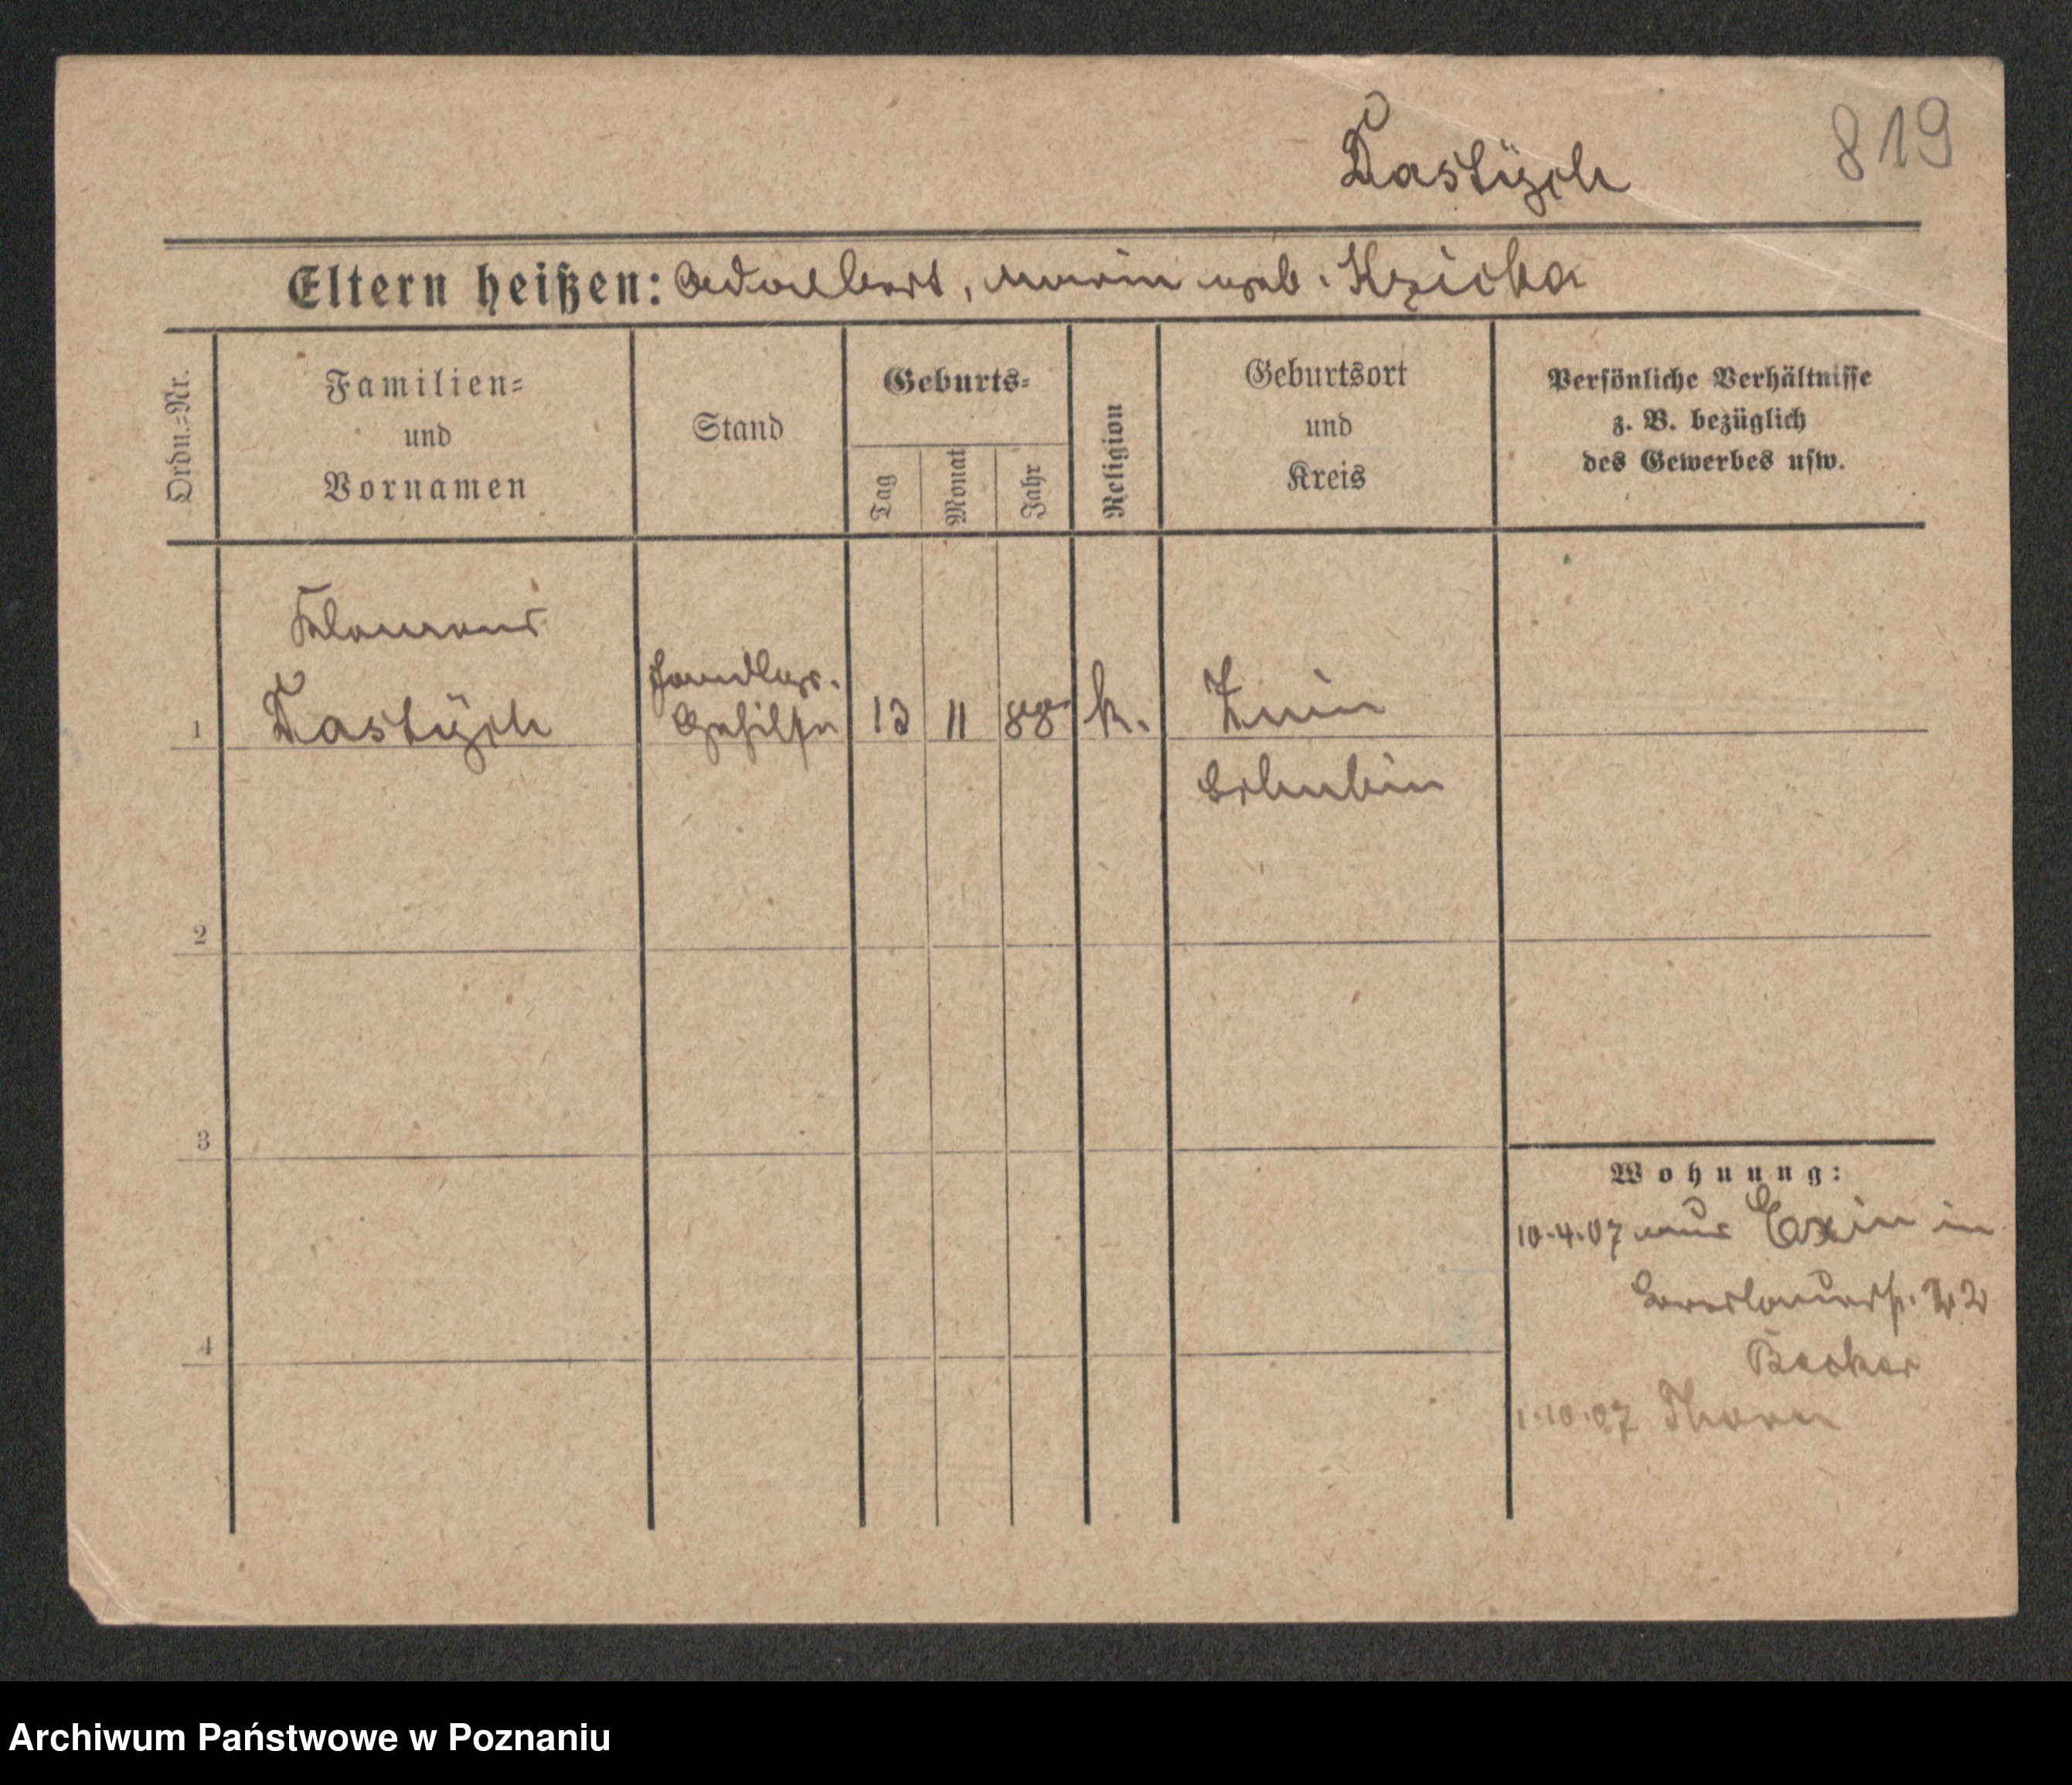 819
Kastüzch
Eltern heißen: Adalbert, Marie geb. Kzicka
Ordn.=Nr.
Familien=
und
Vornamen
Stand
Geburts=
Tag
Monat
Jahr
Religion
Geburtsort
und
Kreis
Persönliche Verhältnisse
z. B. bezüglich
des Gewerbes usw.
Klemens
Handlgs.
1
Gehilfe 13 11 88 k. Znin
Schubin
2
3
4
Wohnung:
10.4.07 aus Exin in
Breslauerstr. 22
Becker
1.10.07 Thorn
Archiwum Państwowe w Poznaniu